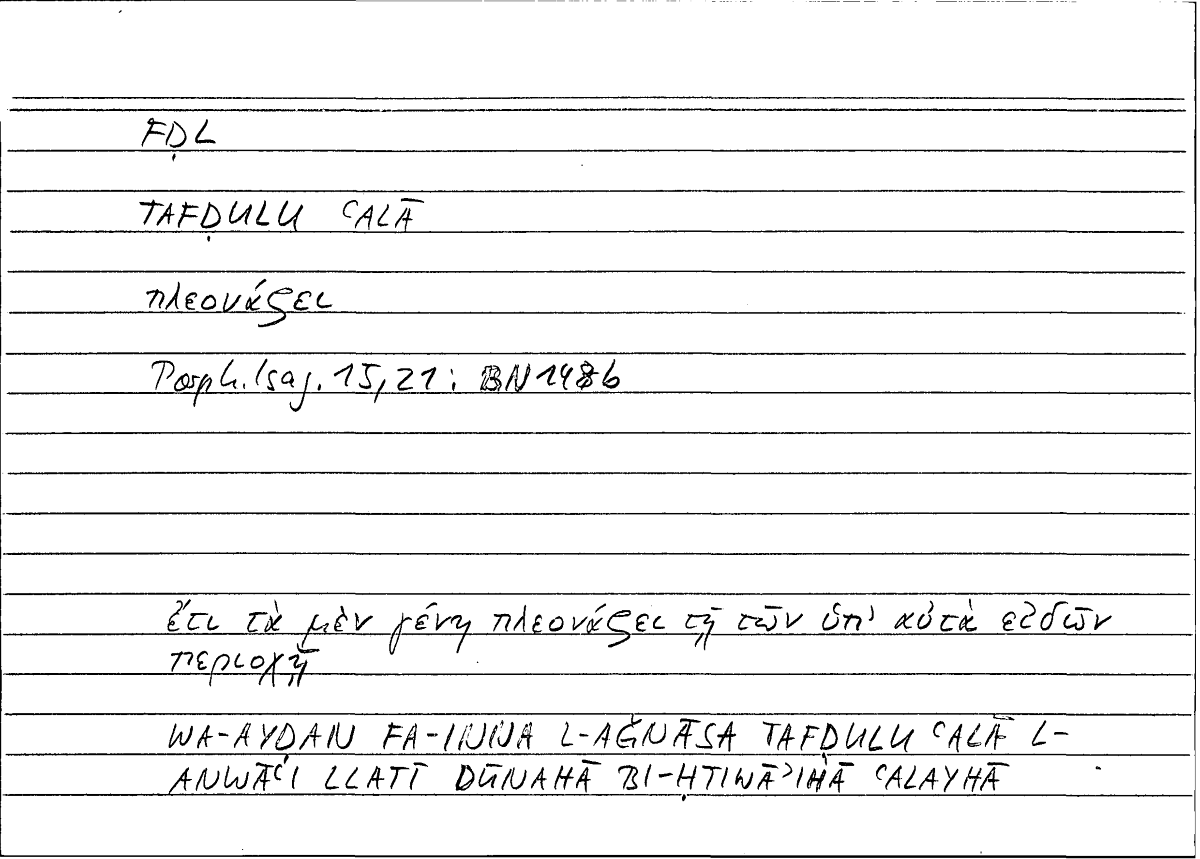 FḌL
TAFḌULU ʿALĀ
πλεονάζει
Porph. Isag. 15,21 : BN 148b
ἔτι τὰ μὲν γένη πλεονάζει τῇ τῶν ὑπ' αὐτὰ εἰδῶν
περιοχῇ
WA-AYḌAN FA-INNA L-AǦNĀSA TAFḌULU ʿALĀ L-
ANWĀʿI LLATĪ DŪNAHĀ BI-ḤTIWĀʾIHĀ ʿALAYHĀ